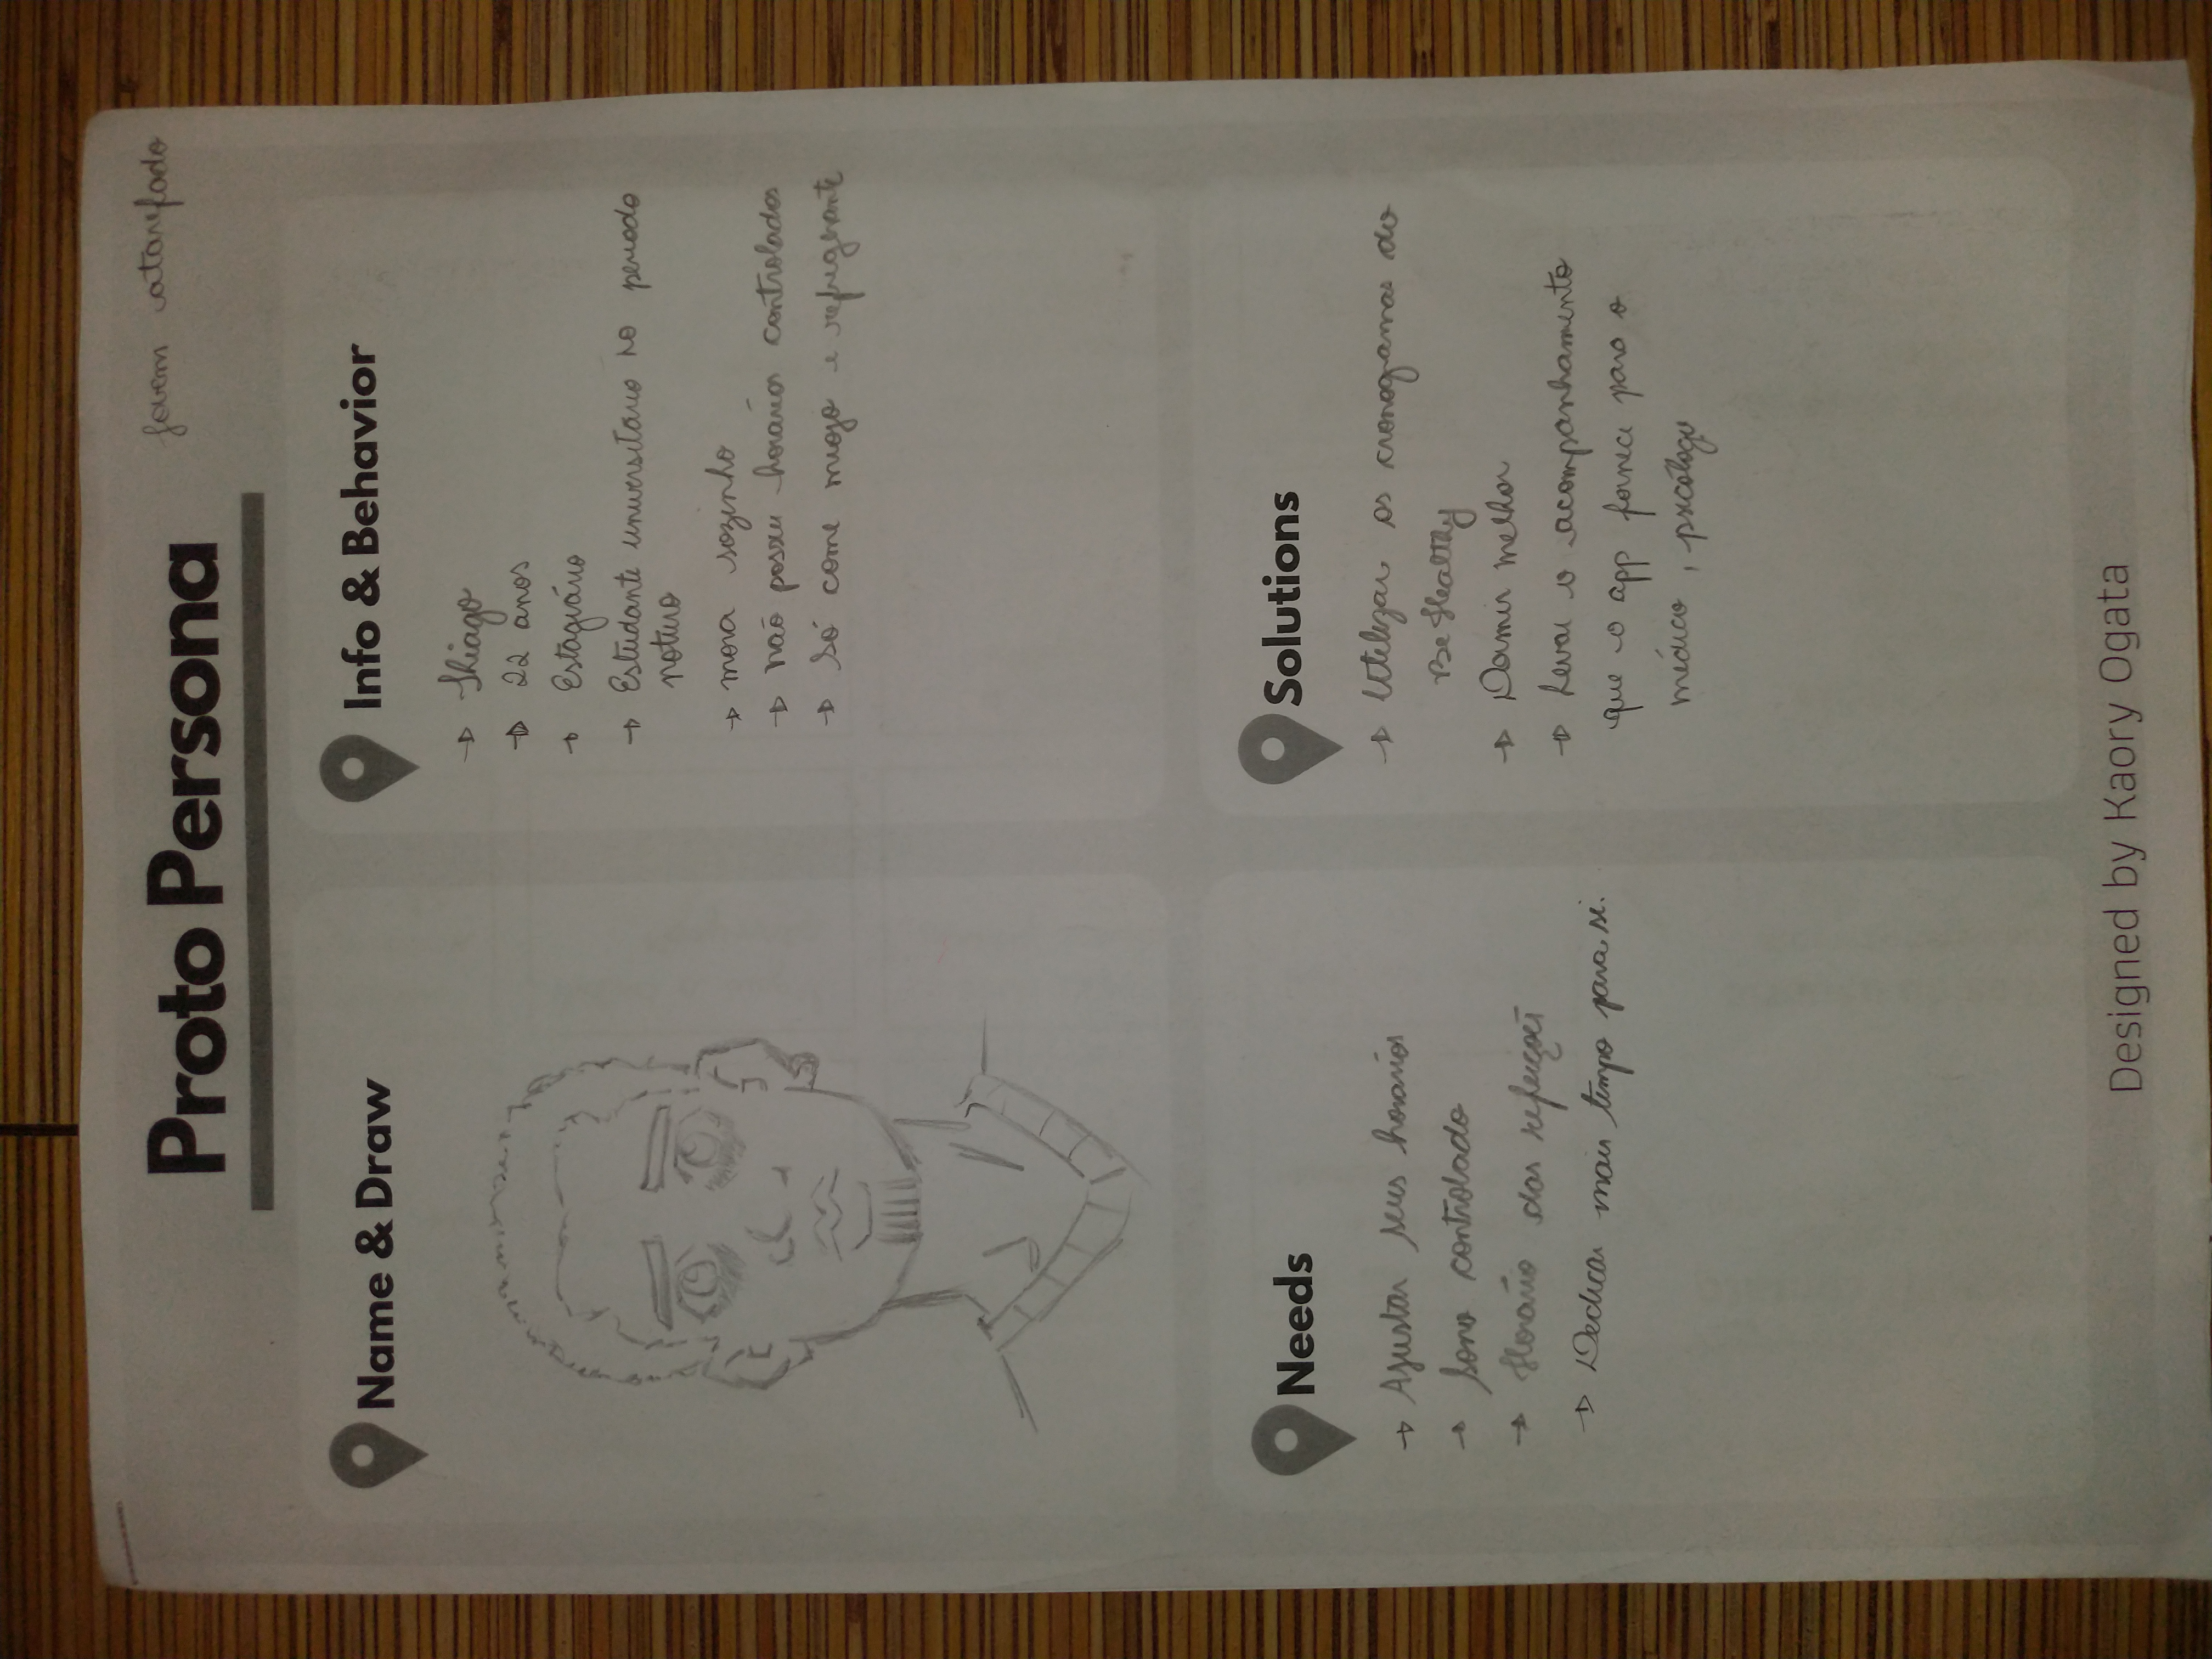 Proto Persona
Jovem atarefado
Name & Draw
Info & Behavior
→ Thiago
→ 22 anos
→ Estagiário
→ Estudante universitário no periodo
noturo
→ mora sozinho
→ não possui horários controlados
→ Só come miojo e refrigerante
Needs
→ Ajustar seus horários
→ Sono controlado
→ Horário das refeições
→ Dedicar mais tempo para si.
Solutions
→ Utilizar os cronogramas do
Be Healthy
→ Dormir melhor
→ Levar o acompanhamento
que o app fornece para o
médico, psicólogo
Designed by Kaory Ogata